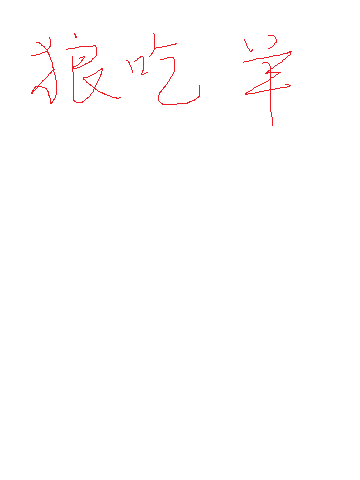 狼吃羊